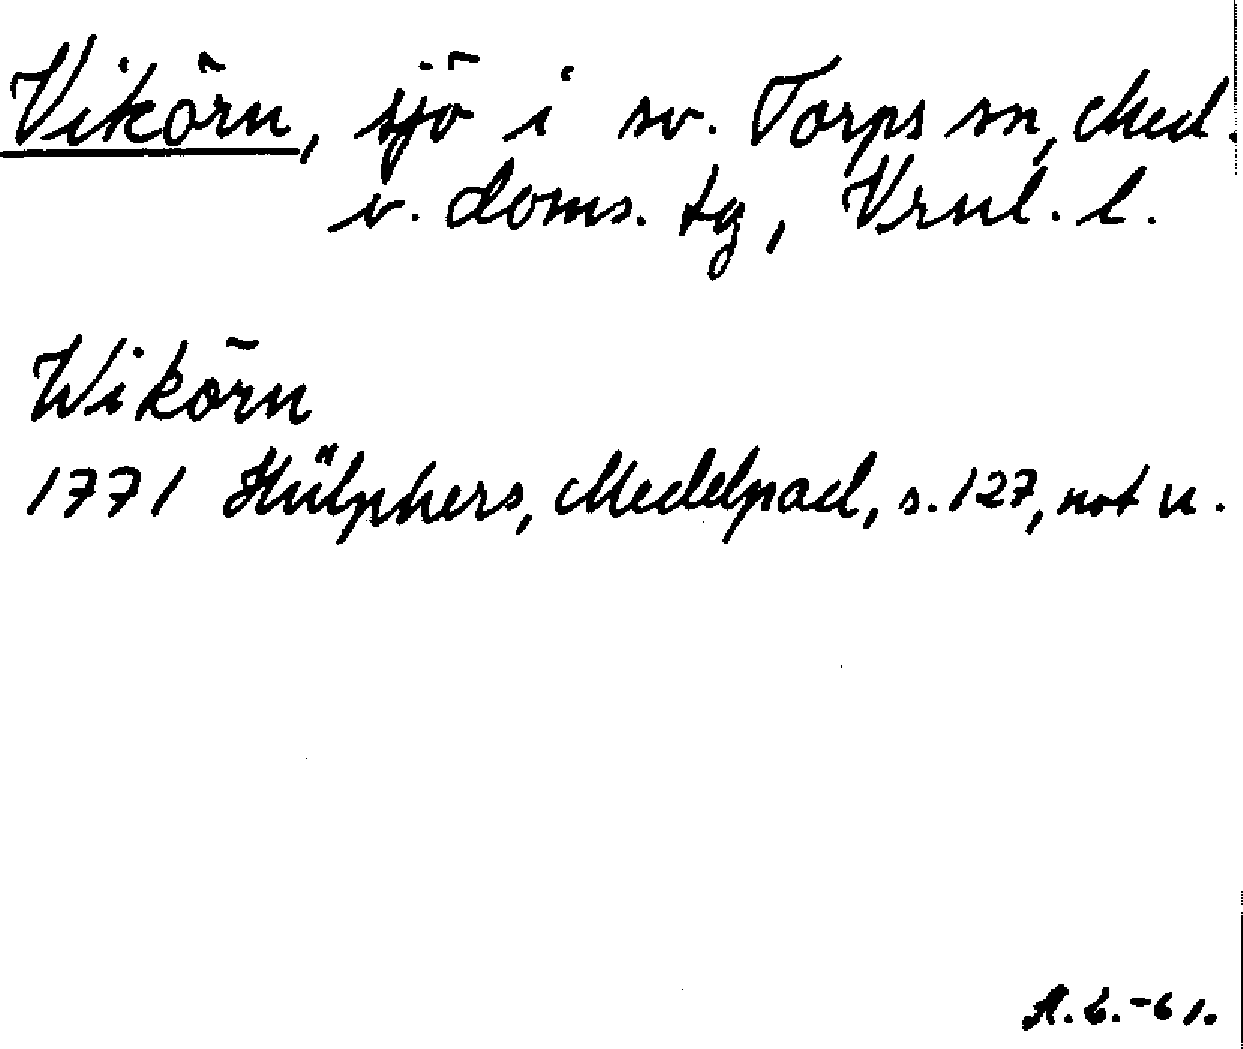 Vikörn, sjö i sv. Torps sn, Med.
v. doms. tg, Vrnl. l.
Wikörn
1771 Hülphers, Medelpad, s. 127, not u.
A. L. -61.